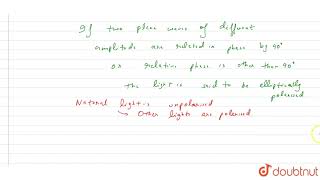 If two plane waves of different
amplitude are related in phase by 90°
or relative phase is other than 90°
the light is said to be elliptically
polarised
Natural light is unpolarised
↳ Other lights are polarised
doubtnut